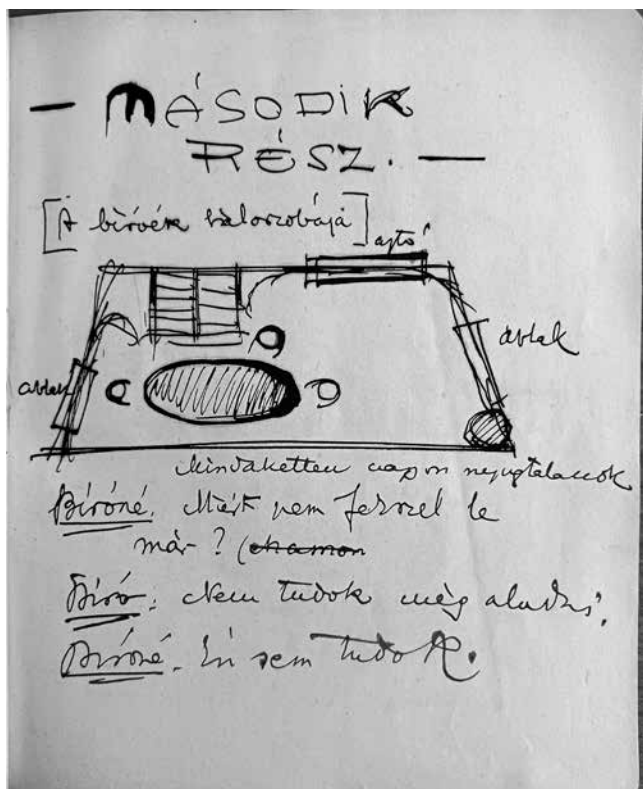 — MÁSODIK
RÉSZ. —
[A bíróék hálószobája]
ajtó
ablak
ablak
Mindaketten nagyon nyugtalanok
Bíróné. Miért nem fekszel le
már? (
Bíró: Nem tudok még aludni.
Bíróné. Én sem tudok.